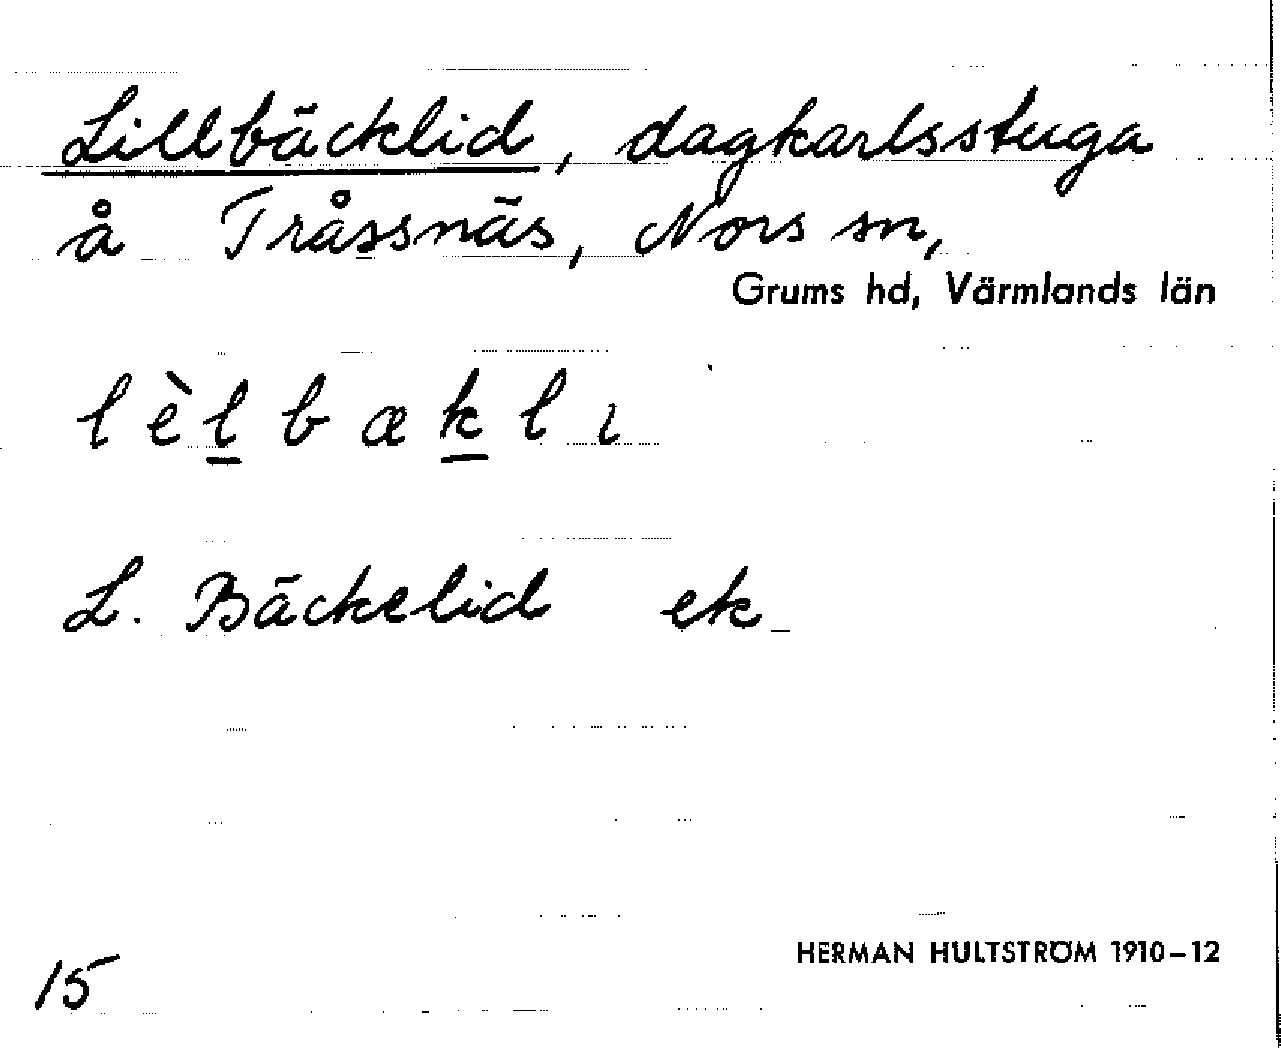 Lillbäcklid, dagkarlsstuga
å Tråssnäs, Nors sn,
Grums hd, Värmlands län
lèl̲bæk̲lɩ
L. Bäckelid ek
HERMAN HULTSTRÖM 1910–12
15